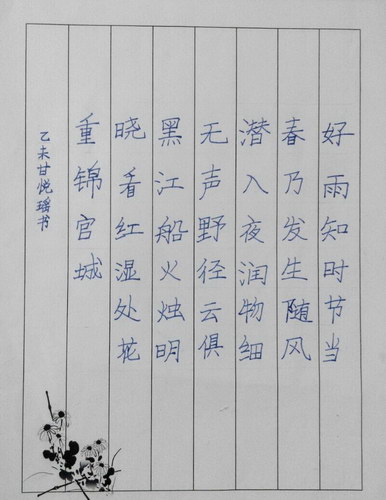 好雨知时节当
春乃发生随风
潜入夜润物细
无声野径云俱
黑江船火烛明
晓看红湿处花
重锦官城
乙未甘悦瑶书